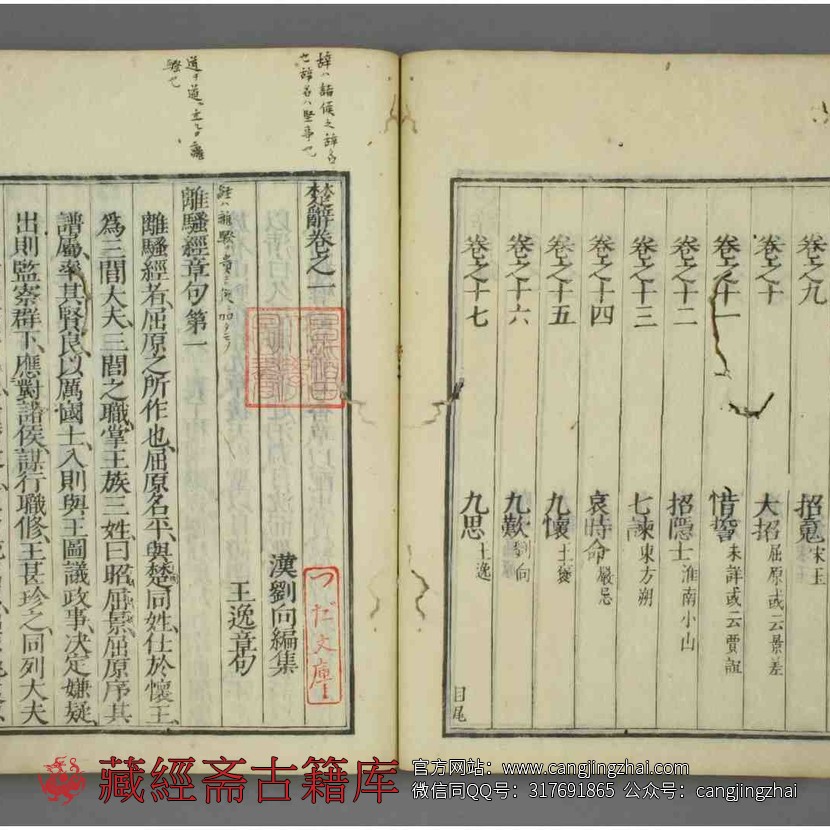 卷之九 招䰟宋玉
卷之十 大招屈原或云景差
卷之十一 惜誓未詳或云賈誼
卷之十二 招隱士淮南小山
卷之十三 七諫東方朔
卷之十四 哀時命嚴忌
卷之十五 九懷王褒
卷之十六 九歎劉向
卷之十七 九思王逸
目尾
辭ハ諸侯之辭名
也辭名ハ堅事也
楚辭卷之一
漢劉向編集
王逸章句
つだ文庫
離騷經章句第一
離騷經者屈原之所作也屈原名平與楚同姓仕於懷王
爲三閭大夫三閭之職掌王族三姓曰昭屈景屈原序其
譜屬率其賢良以厲國士入則與王圖議政事决定嫌疑
出則監察群下應對諸侯謀行職修王甚珍之同列大夫
藏經斋古籍库
官方网站：www.cangjingzhai.com
微信同QQ号：317691865 公众号：cangjingzhai